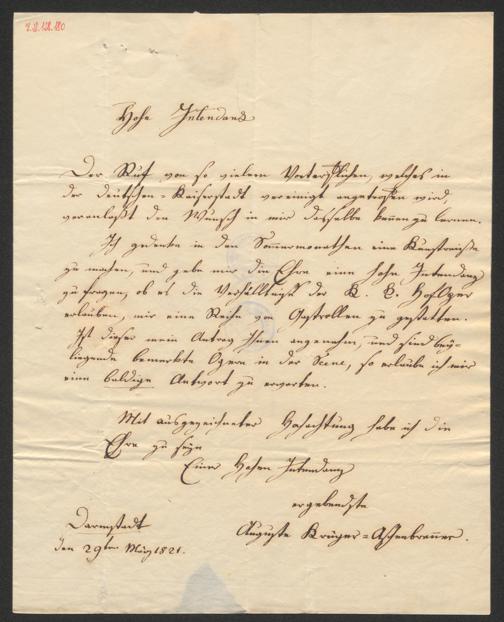 Hohe Intendanz
Der Ruf von so vielem Vortrefflichen, welches in
der deutschen Kaiserstadt vereinigt angetroffen wird,
veranlaßt den Wunsch in mir dasselbe kennen zu lernen.
Ich gedenke in den Sommermonathen eine Kunstreise
zu machen, und gebe mir die Ehre eine hohe Intendanz
zu fragen, ob es die Verhältnisse der K. K. HofOper
erlauben, mir eine Reihe von Gastrollen zu gestatten.
Ist dieser mein Antrag Ihnen angenehm, und sind bey-
liegende bemerkte Opern in der Scene, so erlaube ich mir
eine baldige Antwort zu erwarten.
Mit ausgezeichneter Hochachtung habe ich die
Ehre zu seyn
Einer Hohen Intendanz
ergebendste
Auguste Krüger=Aschenbrenner.
Darmstadt
den 29ten März 1821.